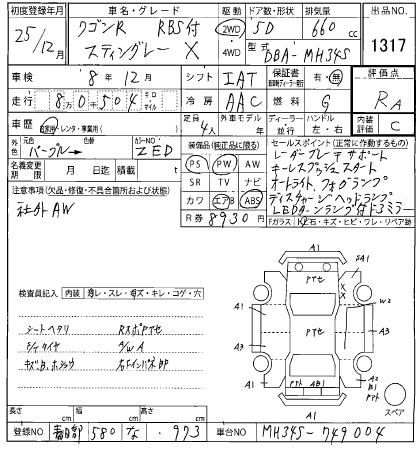 初度登録年月 車名・グレード 駆動 ドア数・形状 排気量 出品NO.
25/12月 ワゴンR RBS付 2WD 5D 660 cc 1317
スティングレー X 4WD 型式 DBA-MH34S
車検 8年12月 シフト IAT 保証書 有・無 評価点
走行 8万0504 キロ マイル 冷房 AAC 燃料 G RA
車歴 自家用・レンタ・事業用( ) 定員 4人 外車モデル 年 ディーラー 並行 ハンドル 左・右 内装評価 C
外色 元色 パープル→ 色替 カラーNO. ZED 装備品(純正品に限る) セールスポイント(正常に作動するもの)
名義変更期限 月 日 積載 t PS PW AW レーダーブレーキサポート
キーレスプッシュスタート
注意事項(欠品・修復・不具合箇所および状態) SR TV ナビ オートライト,フォグランプ
社外AW カワ エアB ABS ディスチャージヘッドランプ
R券 8930円 LEDターンランプ付ドアミラー
Fガラス 石・キズ・ヒビ・ワレ・リペア跡
検査員記入 内装 汚レ・スレ・キズ・キレ・コゲ・穴
シートヘタリ RスポPアセ
A/WA
A1
A1
A1
A3
A3
W2
A2
B1
Pアセ
Pアセ
Pアト AB1
A1
スペア
長さ cm 幅 cm 高さ cm
登録NO 春日部 580 な ・973 車台NO MH34S-749004